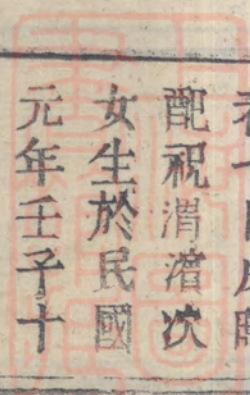 配祝渭濱次
女生於民國
元年壬子十